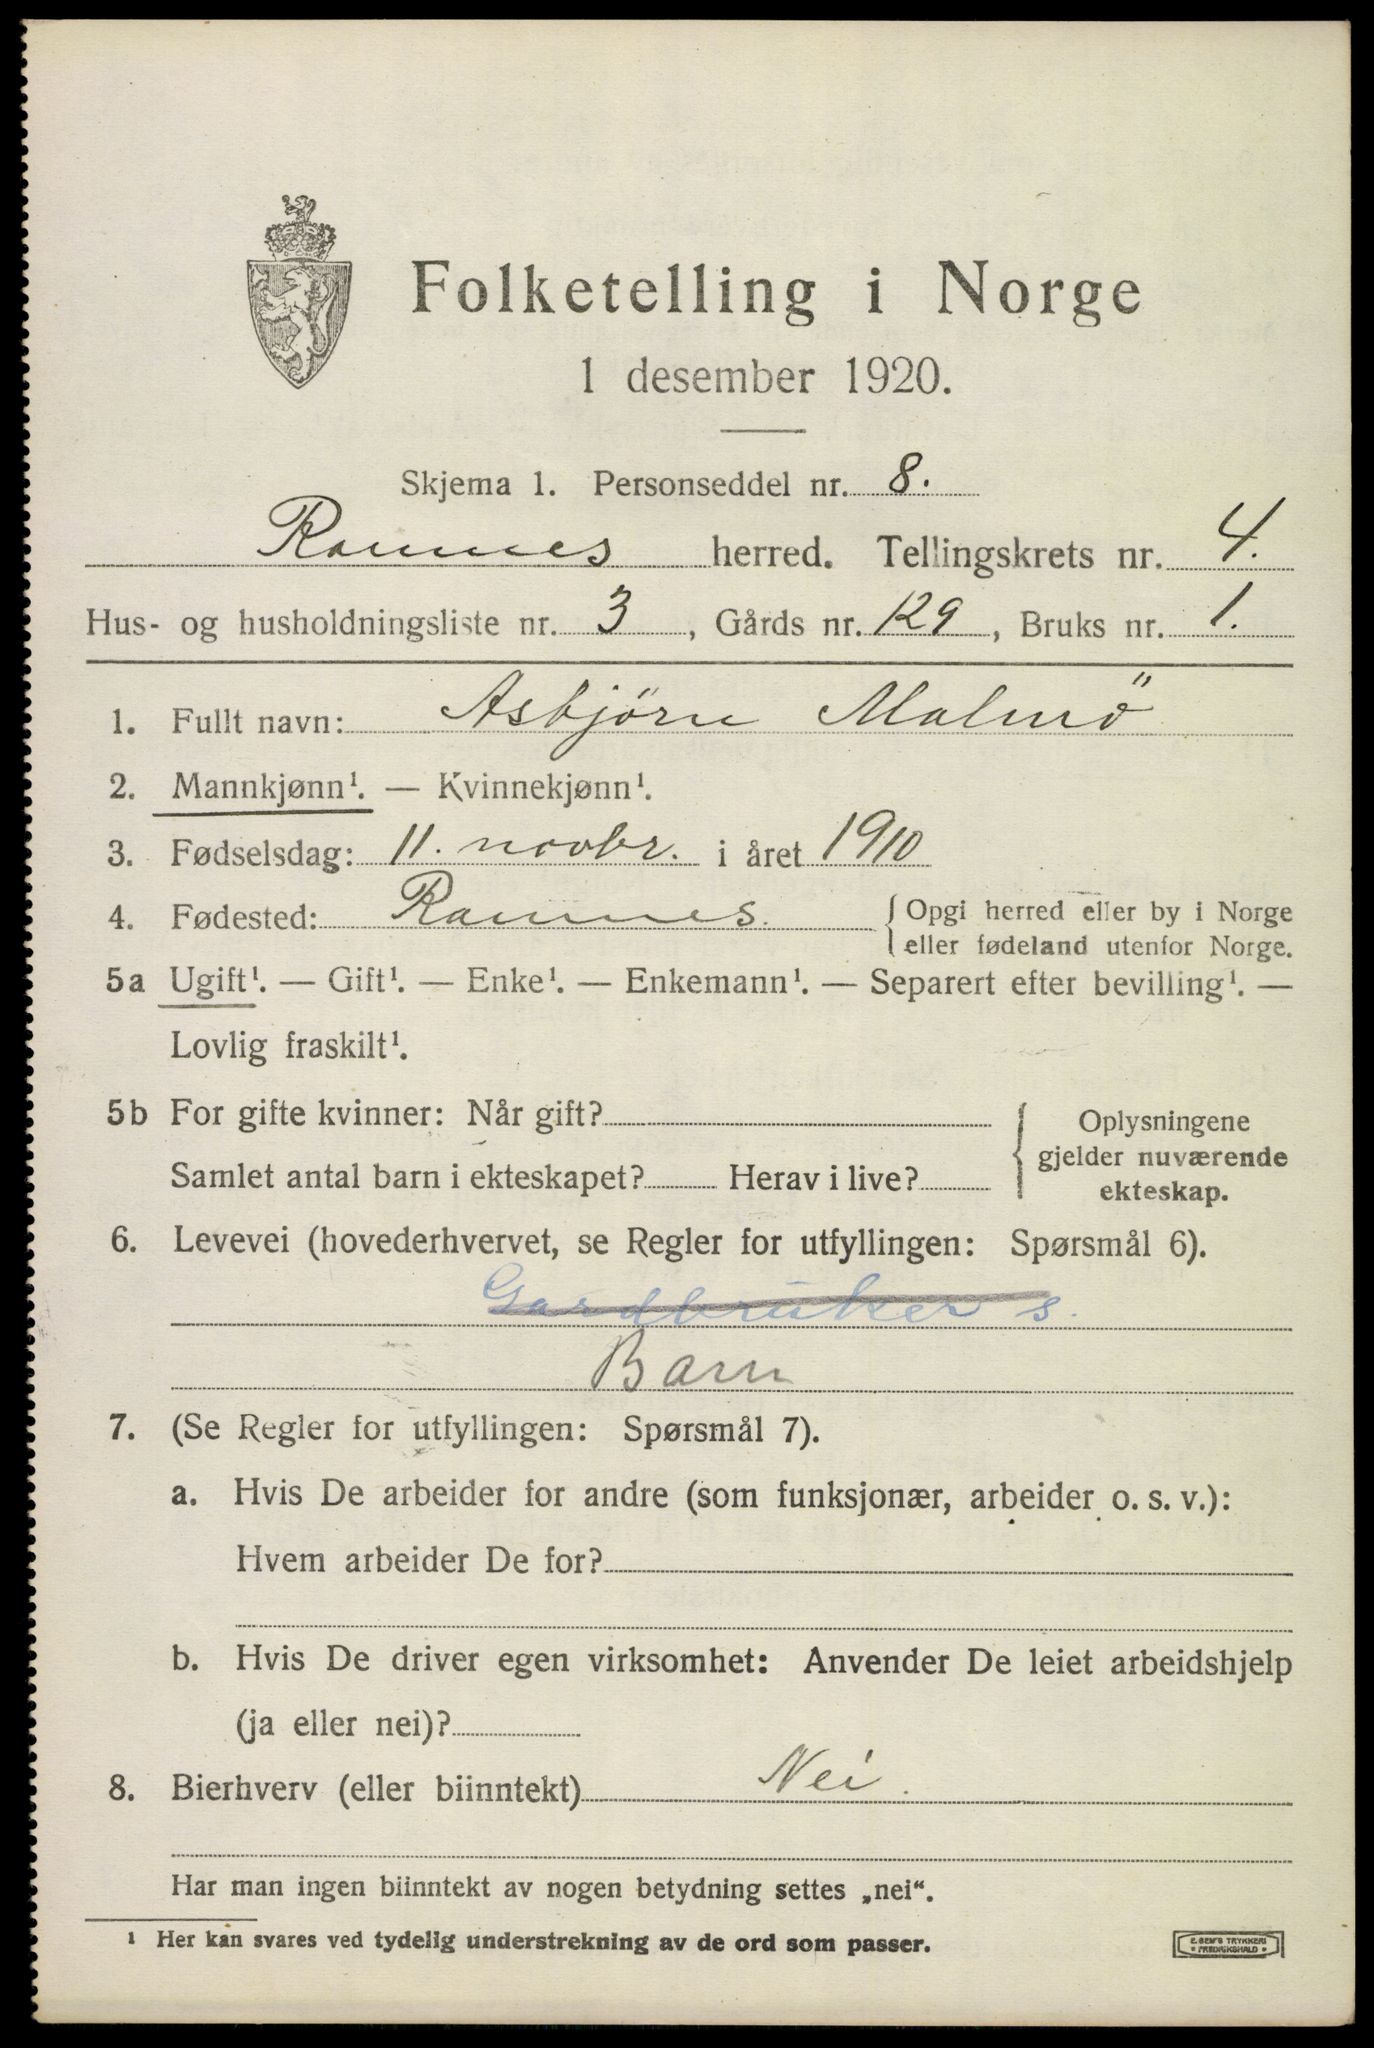 Folketelling i Norge
1 desember 1920.
Skjema 1. Personseddel nr. 8.
Ramnes herred. Tellingskrets nr. 4.
Hus- og husholdningsliste nr. 3, Gårds nr. 129, Bruks nr. 1.
1. Fullt navn: Asbjörn Malmö
2. Mannkjønn¹. — Kvinnekjønn¹.
3. Fødselsdag: 11. novbr. i året 1910
4. Fødested: Ramnes. { Opgi herred eller by i Norge
eller fødeland utenfor Norge.
5a Ugift¹. — Gift¹. — Enke¹. — Enkemann¹. — Separert efter bevilling¹. —
Lovlig fraskilt¹.
5b For gifte kvinner: Når gift?
Samlet antal barn i ekteskapet? Herav i live?
Oplysningene
gjelder nuværende
ekteskap.
6. Levevei (hovederhvervet, se Regler for utfyllingen: Spørsmål 6).
Gardbruker s.
Barn
7. (Se Regler for utfyllingen: Spørsmål 7).
a. Hvis De arbeider for andre (som funksjonær, arbeider o. s. v.):
Hvem arbeider De for?
b. Hvis De driver egen virksomhet: Anvender De leiet arbeidshjelp
(ja eller nei)?
8. Bierhverv (eller biinntekt) Nei.
Har man ingen biinntekt av nogen betydning settes „nei“.
¹ Her kan svares ved tydelig understrekning av de ord som passer.
E. SEM'S TRYKKERI
• FREDRIKSHALD •